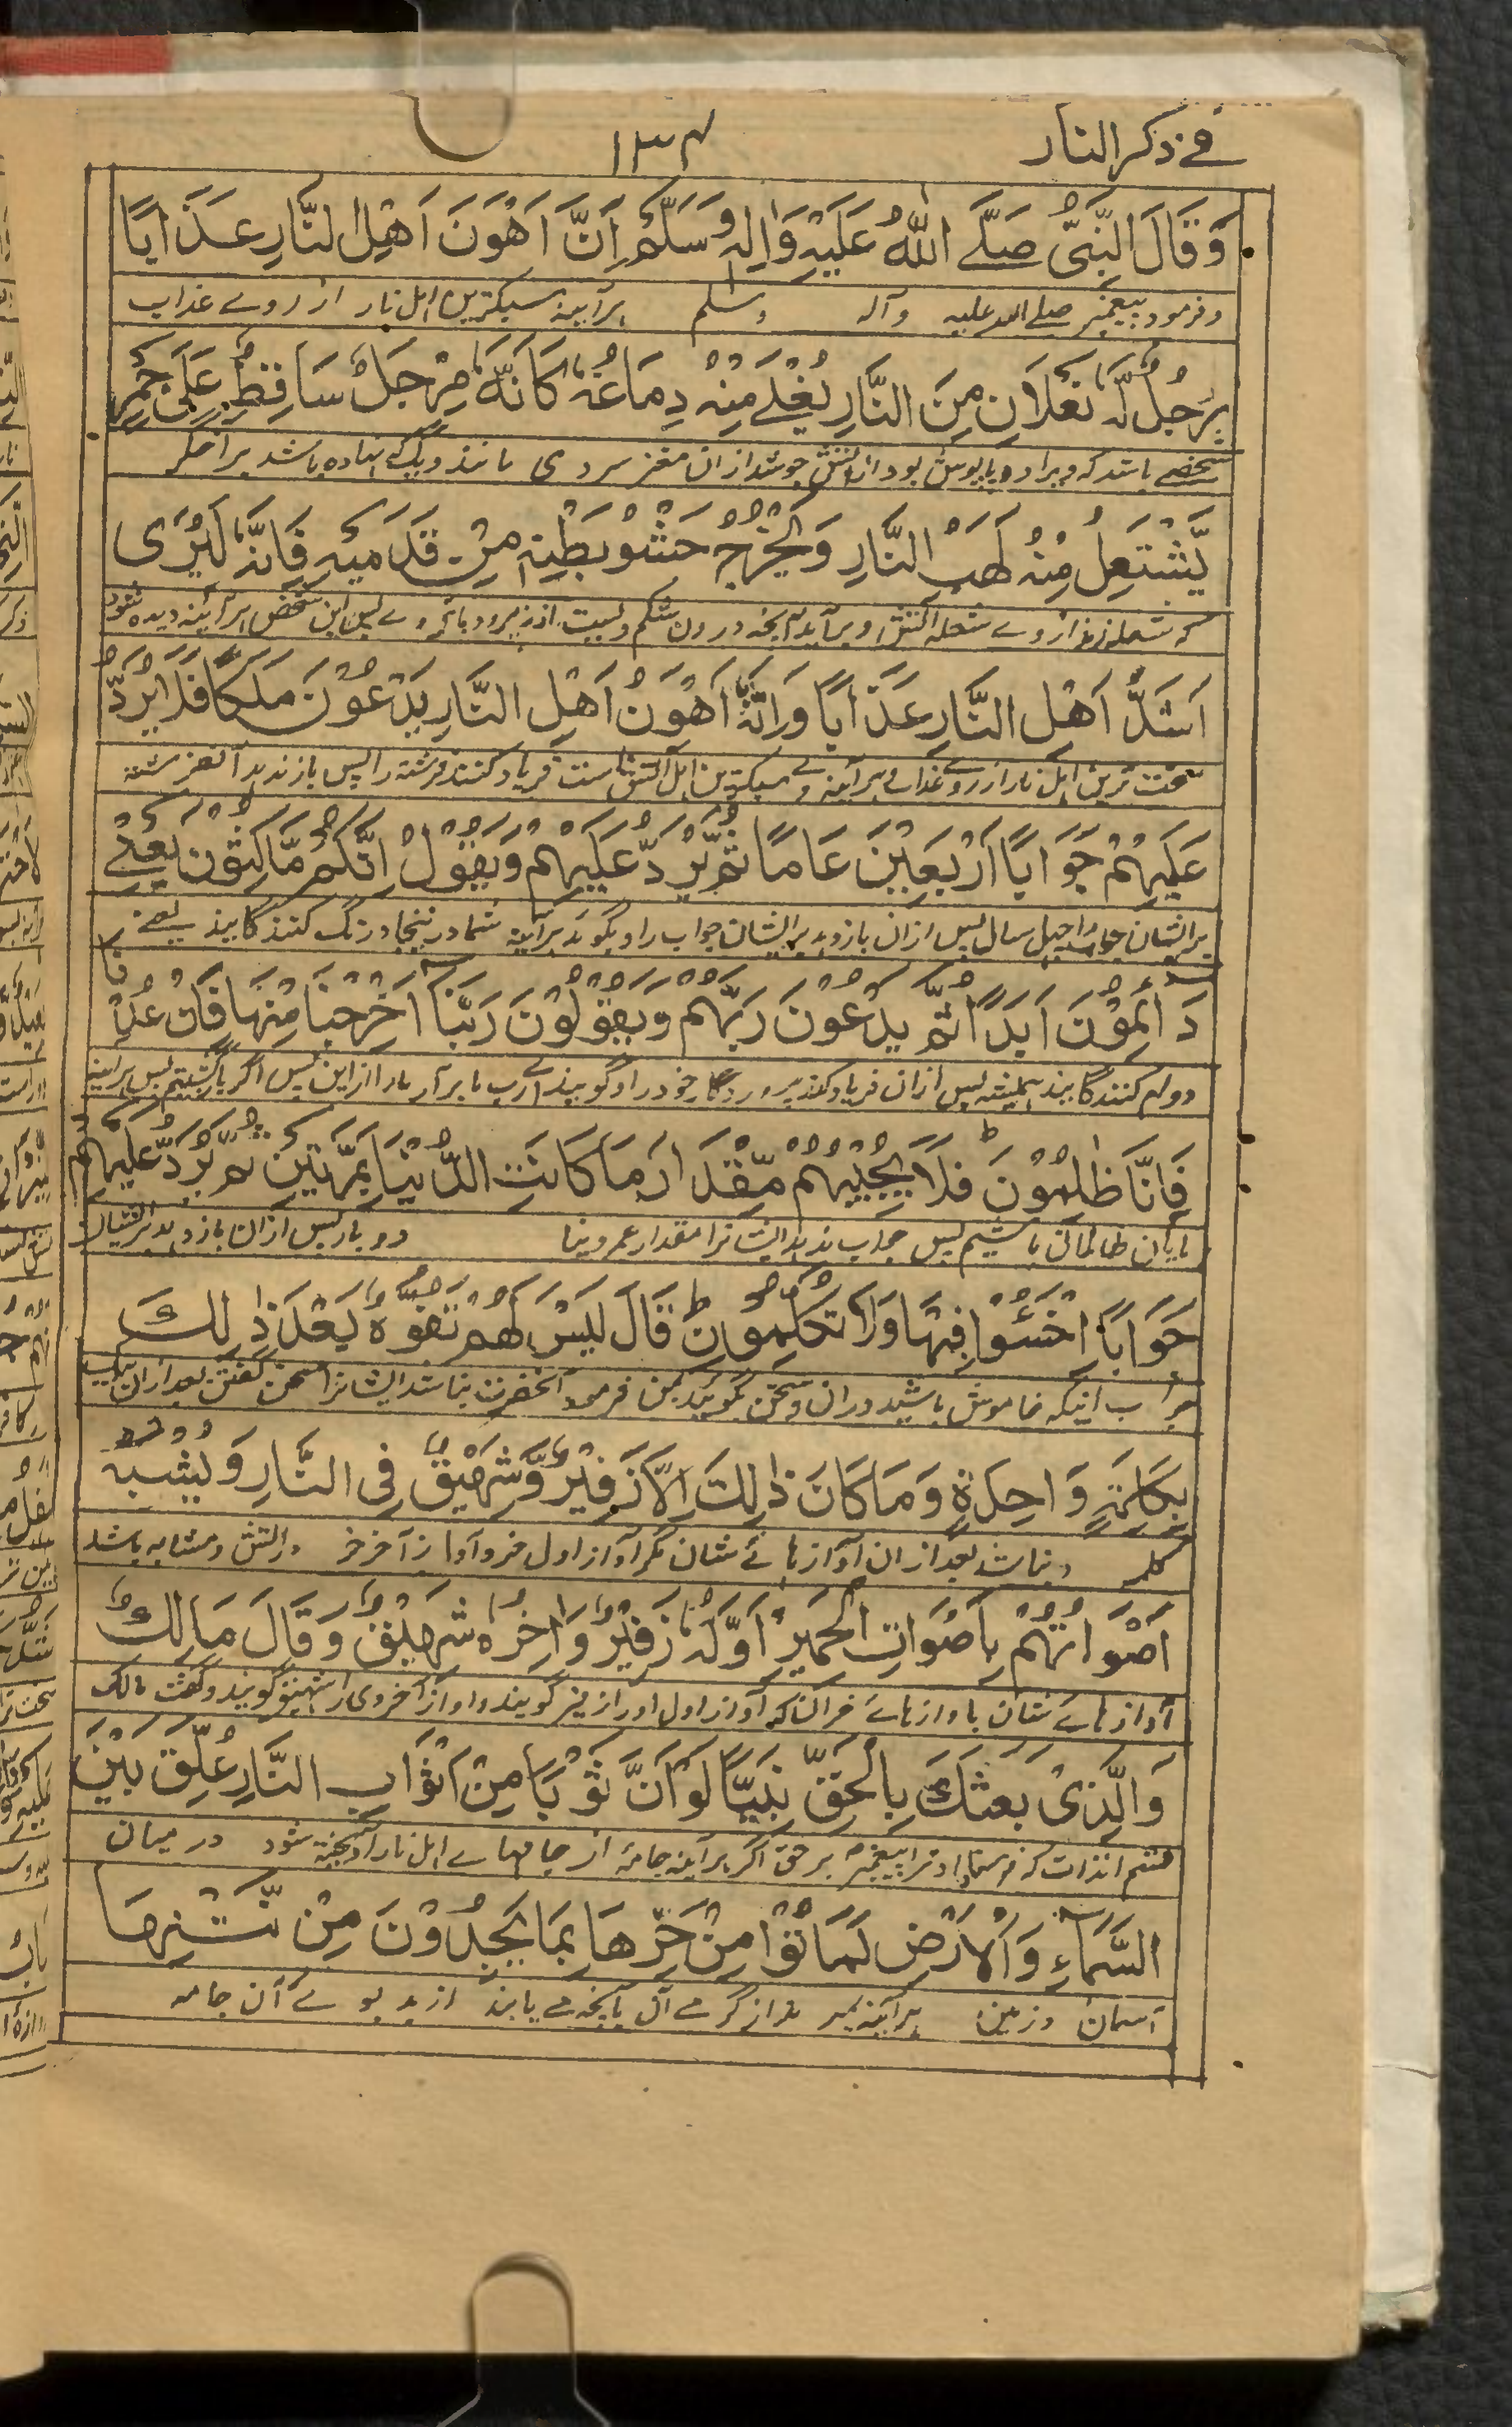 في ذكر النار
١٣٤
وَقَالَ النَّبِيُّ صَلَّے اللّٰهُ عَلَيْهِ وَاٰلِهٖ وَسَلَّمَ اِنَّ اَهْوَنَ اَهْلِ النَّارِ عَذَابًا
و فرمود پیغمبر صلے الله علیه و آله وسلم هر آیینه سبکترین اهل نار از روے عذاب
رَجُلٌ لَهٗ نَعْلَانِ مِنَ النَّارِ يَغْلِے مِنْهُ دِمَاغُهٗ كَاَنَّهٗ مِرْجَلٌ سَاقِطٌ عَلَى جَمْرٍ
شخصے باشد که ویرا دو پاپوش بود از آتش جوشد ازان مغز سر وی مانند دیگ نهاده باشد بر اخگر
يَّشْتَعِلُ مِنْهُ لَهَبُ النَّارِ وَيَخْرُجُ حَشْوُ بَطْنِهٖ مِنْ قَدَمَيْهِ فَاِنَّهٗ لَيُرٰى
که شعله زند از وے شعله آتش و بر آید آنچه درون شکم ویست از زیر دو پاے وے پس این شخص هر آینه دیده شود
اَشَدُّ اَهْلِ النَّارِ عَذَابًا وَاِنَّهٗ اَهْوَنُ اَهْلِ النَّارِ يَدْعُوْنَ مَلَكًا فَلَا يَرُدُّ
سخت ترین اهل نار از روے عذاب و هر آینه وے سبکترین اهل آتش است فریاد کنند فرشته را پس باز ندهد آنفرشته
عَلَيْهِمْ جَوَابًا اَرْبَعِيْنَ عَامًا ثُمَّ يَرُدُّ عَلَيْهِمْ وَيَقُوْلُ اِنَّكُمْ مَّاكِثُوْنَ يَعْنِے
بر ایشان جواب را چهل سال پس ازان باز دهد بر ایشان جواب را و بگوید هر آینه شما در ینجا درنگ کنندگانید یعنے
دَائِمُوْنَ اَبَدًا ثُمَّ يَدْعُوْنَ رَبَّهُمْ وَيَقُوْلُوْنَ رَبَّنَا اَخْرِجْنَا مِنْهَا فَاِنْ عُدْنَا
دوام کنندگانید همیشه پس ازان فریاد کنند پروردگار خود را و گویند اے رب ما بر آر مارا ازاین پس اگر باز گشتیم پس هر آینه
فَاِنَّا ظٰلِمُوْنَ ط فَلَا يُجِيْبُهُمْ مِّقْدَارَ مَا كَانَتِ الدُّنْيَا مَرَّتَيْنِ ثُمَّ يَرُدُّ عَلَيْهِمْ
مایان ظالمان باشیم پس جواب ندهد ایشانرا مقدار عمر دنیا دو بار پس ازان باز دهد بر ایشان
جَوَابًا اخْسَئُوْا فِيْهَا وَلَا تُكَلِّمُوْنِ ط قَالَ لَيْسَ لَهُمْ تَفَوُّهٌ بَعْدَ ذٰلِكَ
جواب اینکه خاموش باشید دران و سخن نگویید بمن فرمود آنحضرت نباشد ایشانرا سخن گفتن بعد ازان بیک
بِكَلِمَةٍ وَاحِدَةٍ وَمَا كَانَ ذٰلِكَ اِلَّا زَفِيْرٌ وَّشَهِيْقٌ فِى النَّارِ وَيُشْبِهُ
کلمه و نباشد بعد ازان آواز هاے شان مگر آواز اول خر و آواز آخر خر در آتش و مشابه باشد
اَصْوَاتُهُمْ بِاَصْوَاتِ الْحَمِيْرِ اَوَّلُهٗ زَفِيْرٌ وَاٰخِرُهٗ شَهِيْقٌ وَقَالَ مَالِكٌ
آواز هاے شان باواز هاے خر انکه آواز اول او را زفیر گویند و آواز آخر وی را شهیق گویند و گفت مالک
وَالَّذِىْ بَعَثَكَ بِالْحَقِّ نَبِيًّا لَوْ اَنَّ ثَوْبًا مِنْ اَثْوَابِ النَّارِ عُلِّقَ بَيْنَ
قسم انذات که فرستاد او ترا پیغمبر بر حق اگر هر آینه جامهٔ از جامهاے اهل نار آویخته شود در میان
السَّمَاءِ وَالْاَرْضِ لَمَاتُوْا مِنْ حَرِّهَا بِمَا يَجِدُوْنَ مِنْ نَّتْنِهَا
آسمان و زمین هر آینه بمیرند از گرمے آن بآنچه مے یابند از بد بوے آن جامه